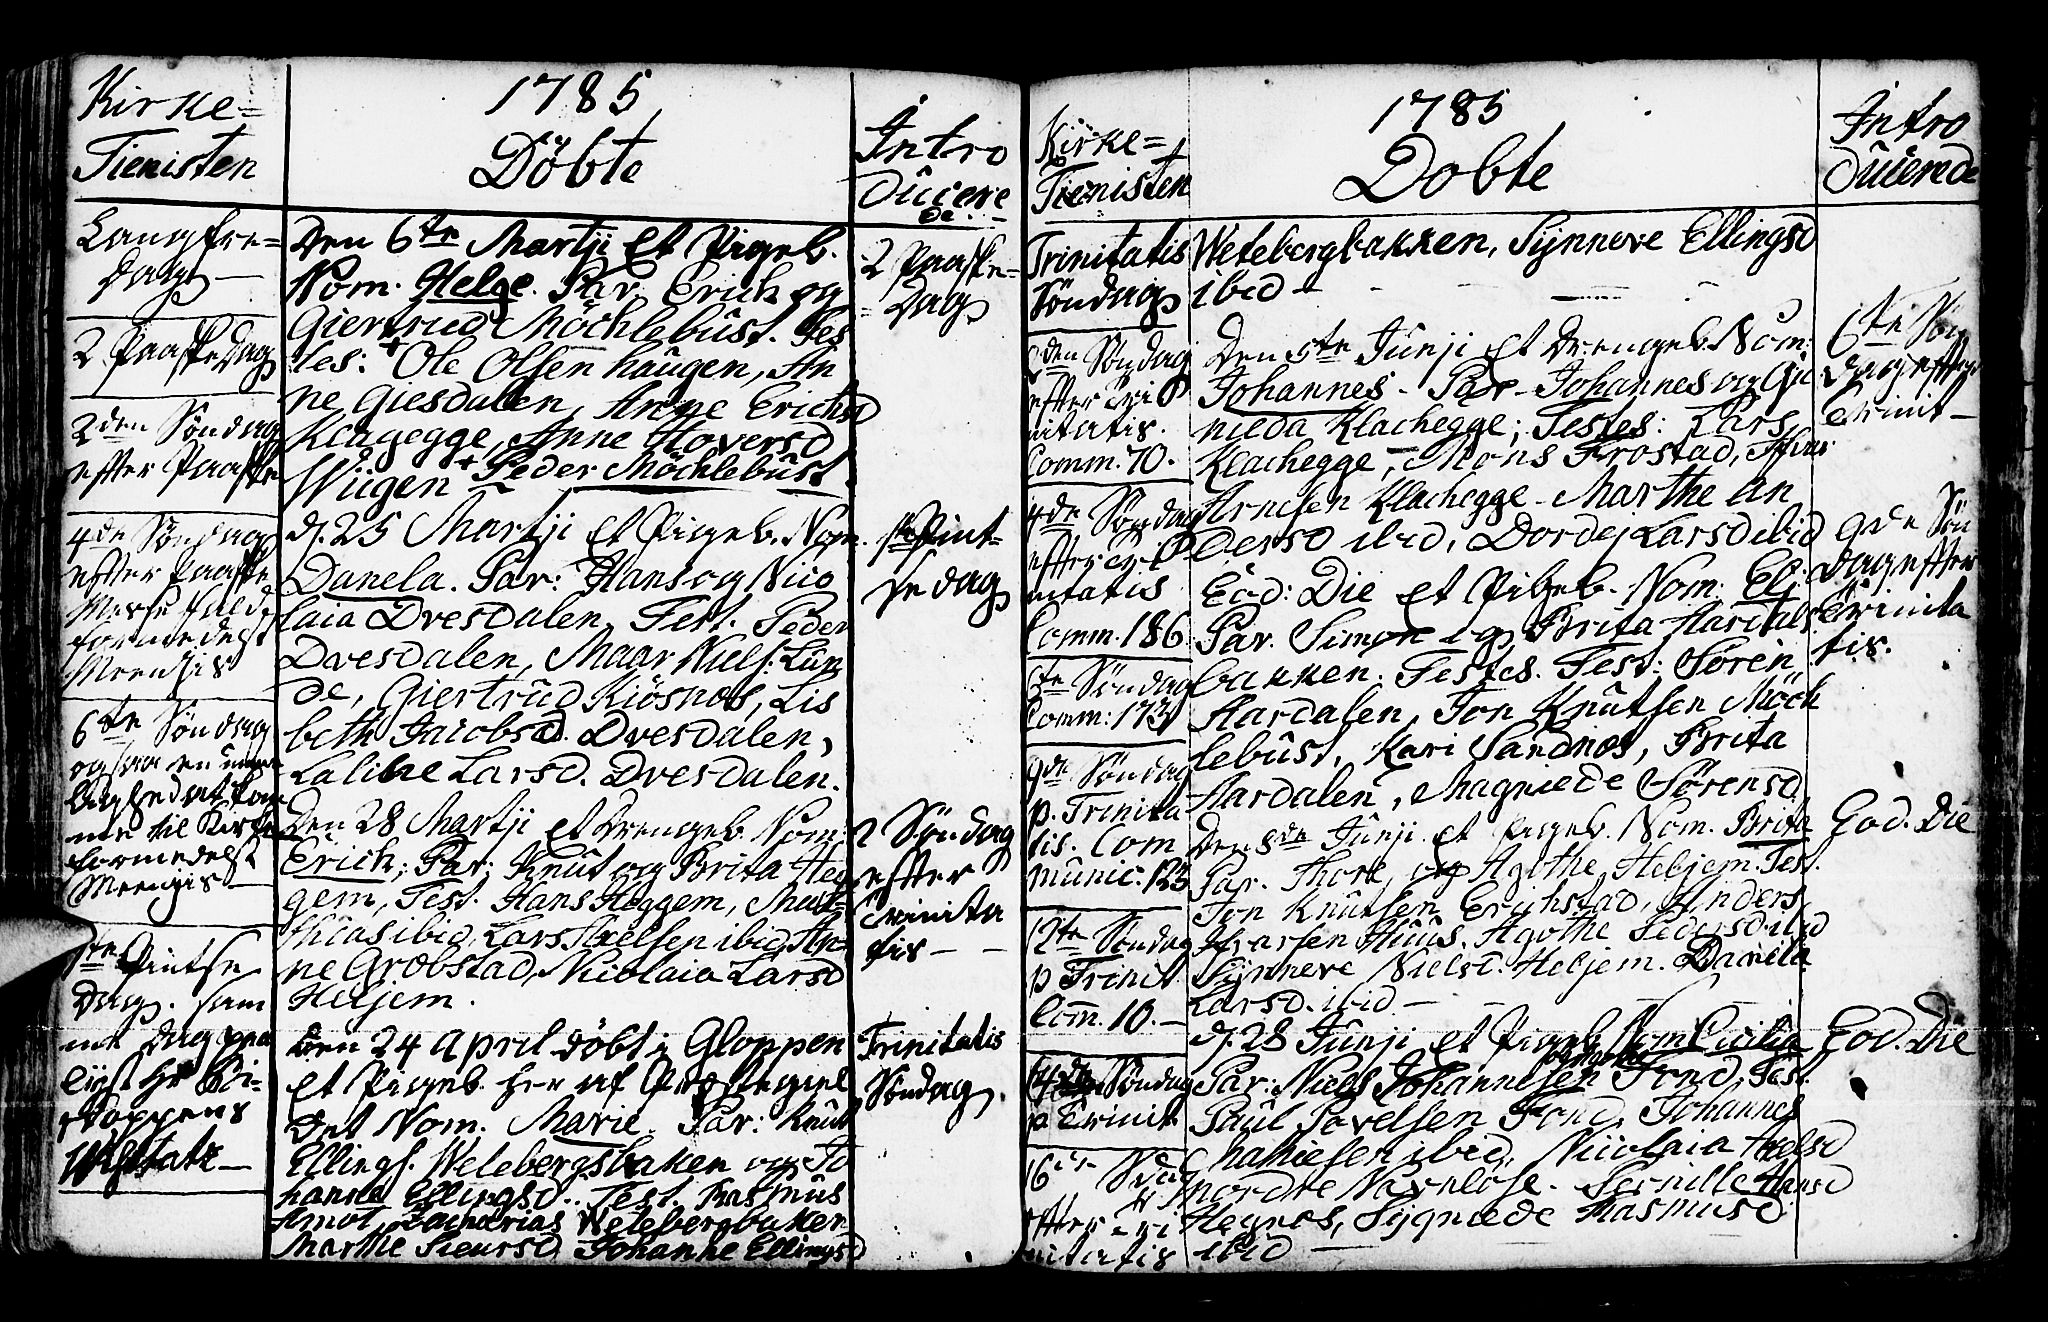 Kirke=
Tienisten
1785
Döbte
Intro
Ducere
de.
Langfre=
dag
2 Paaskedag
2den Söndag
efter Paaske
4de Söndag
efter Paaske
Messefald
formedelst
6te Söndag
ogsaa en
til Kirke
formedelst
1te Pintse
Dag. sam
me Dag
lyst Hr Bi-
skoppens
Visitatz
Den 6te Martji Et Pigeb.
Nom. Helge. Par. Erich og
Giertrud Möchlebust. Tes
tes: Ole Olsen haugen, An
ne Giesdalen, Anne Erichsd
Klagegge, Anne Hoversd
Wiigen + Peder Möchlebust.
d. 25 Martji et Pigeb. Nom.
Danela. Par: Hans og Nico
laia Dvesdalen, Test. Peder
Dvesdalen, Maar Niels: Lun
de, Giertrud Kiösnæs, Lis
beth Jacobsd. Dvesdalen,
Laline Larsd. Dvesdalen.
Den 28 Martji et Drengeb. Nom:
Erich; Par: Knut og Brita Heg
gem, Test. Hans Heggem, Mat-
thias ibid, Lars Nielsen ibid, An-
ne Græbstad, Nicolaia Larsd
Heljem.
Den 24 April döbt i Gloppen
et Pigeb. her af Præstegiel
det Nom. Marie. Par: Knut
Ellings. Wetebergsbaken og Jo
hanne Ellingsd. Test. Rasmus
Amot, Zacharias Wetebergbaken
Marthe Siursd, Johanne Ellingsd
2 Paaske=
Dag
1te Pint-
sedag
2 Söndag
efter
Trinita
tis
Trinitatis
Söndag.
Kirke=
Tienisten
1785
Dobte
Intro
Ducerede
Trinitatis
Söndag
2den Söndag
efter Tri
nitatis.
Comm. 70.
4de Söndag
efter Tri
nitatis
Comm. 186
6te Söndag
Comm: 173
9de Söndag
p. Trinita
tis. Com
munic. 123
12te Söndag
p Trinit
Com. 10.
Söndag
p Trinit
16de Söndag
efter Tri
nitatis
Wetebergbakken, Synneve Ellingsd
ibid
Den 5te Junji et Drengeb. Nom:
Johannes. Par. Johannes og Gu
nilda Klachegge; Testes: Lars
Klachegge, Mons Frostad,
Arnesen Klachegge. Marthe An
dersd ibid, Dordej Larsd ibid
Eod: Die et Pigeb. Nom. Eli.
Par. Simon og Brita Aardals
bakken. Testes. Test: Sören
Aardalen, Jon Knutsen Möch
lebust, Kari Sandnæs, Brita
Aardalen, Magnilde Sörensd
Den 8de Junji et Pigeb. Nom. Brita
Par. Thore og Agothe Heljem. Test.
Jon Knutsen Erichstad, Anders
Ifvarsen Huus. Agothe Pedersd ibid
Synneve Nielsd. Heljem. Daniela
Larsd. ibid
d. 28 Junji et Pigeb. Nom Cicilia
Par: Niels Johannesen Fond, Test.
Paul Povelsen Fond, Johannes
ibid, Niicolaia
nordre Navelöse. Pernille Hansd
Hegnæs, Sygnede Rasmusd
ibid
6te Sön
dag efter
Trinit
9de Sön
dag efter
Trinita
tis.
Eod. Die
Eod. Die